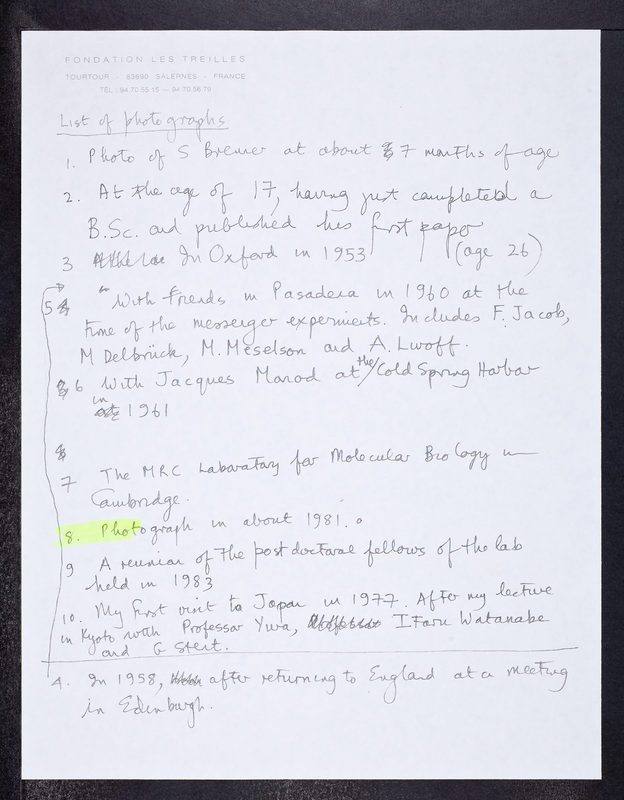 FONDATION LES TREILLES
TOURTOUR - 83690 SALERNES - FRANCE
TÉL : 94 70 55 15 — 94 70 56 79
List of photographs
1. Photo of S Brenner at about 7 months of age
2. At the age of 17, having just completed a
B.Sc. and published his first paper
3 In Oxford in 1953 (age 26)
5 With friends in Pasadena in 1960 at the
time of the messenger experiments. Includes F. Jacob,
M Delbrück, M. Meselson and A. Lwoff.
6 With Jacques Monod at the Cold Spring Harbor
in 1961
7 The MRC Laboratory for Molecular Biology in
Cambridge.
8. Photograph in about 1981.
9 A reunion of the post doctoral fellows of the lab
held in 1983
10. My first visit to Japan in 1977. After my lecture
in Kyoto with Professor Yura, Itaru Watanabe
and G Stent.
4. In 1958, after returning to England at a meeting
in Edinburgh.